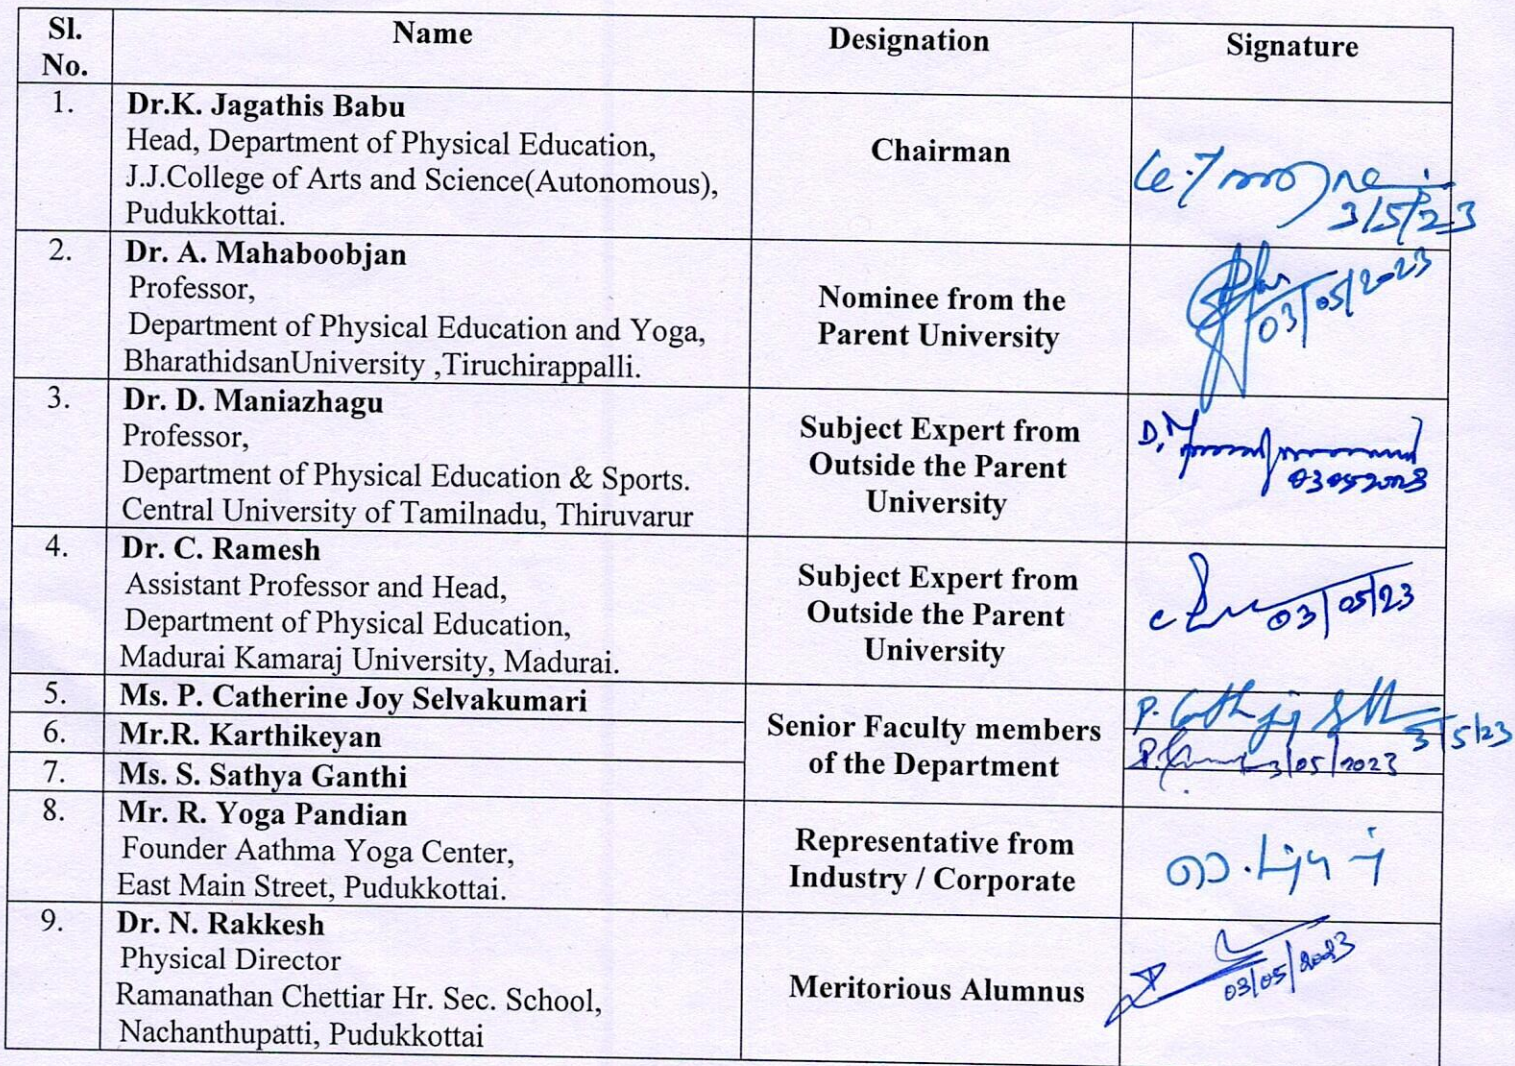 Sl. No.
Name
Designation
Signature
1.
Dr.K. Jagathis Babu
Head, Department of Physical Education,
J.J.College of Arts and Science(Autonomous),
Pudukkottai.
Chairman
3/5/23
2.
Dr. A. Mahaboobjan
Professor,
Department of Physical Education and Yoga,
BharathidsanUniversity ,Tiruchirappalli.
Nominee from the
Parent University
03/05/2023
3.
Dr. D. Maniazhagu
Professor,
Department of Physical Education & Sports.
Central University of Tamilnadu, Thiruvarur
Subject Expert from
Outside the Parent
University
03052023
4.
Dr. C. Ramesh
Assistant Professor and Head,
Department of Physical Education,
Madurai Kamaraj University, Madurai.
Subject Expert from
Outside the Parent
University
03/05/23
5.
Ms. P. Catherine Joy Selvakumari
6.
Mr.R. Karthikeyan
7.
Ms. S. Sathya Ganthi
Senior Faculty members
of the Department
3/5/23
3/05/2023
8.
Mr. R. Yoga Pandian
Founder Aathma Yoga Center,
East Main Street, Pudukkottai.
Representative from
Industry / Corporate
9.
Dr. N. Rakkesh
Physical Director
Ramanathan Chettiar Hr. Sec. School,
Nachanthupatti, Pudukkottai
Meritorious Alumnus
03/05/2023